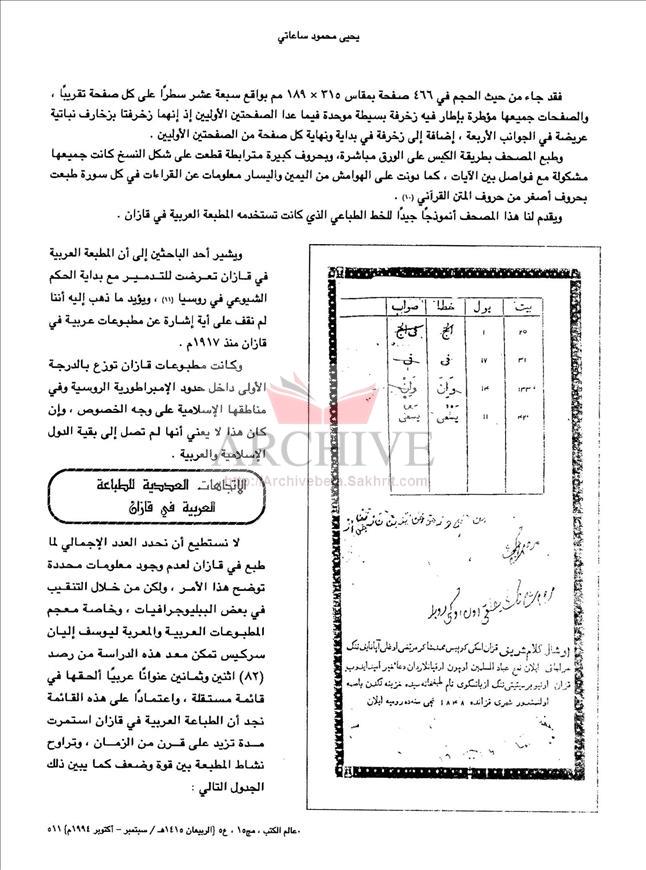 يحيى محمود ساعاتي
فقد جاء من حيث الحجم في ٤٦٦ صفحة بمقاس ٣١٥ × ١٨٩ مم بواقع سبعة عشر سطرًا على كل صفحة تقريبًا ،
والصفحات جميعها مؤطرة بإطار فيه زخرفة بسيطة موحدة فيما عدا الصفحتين الأوليين إذ إنهما زخرفتا بزخارف نباتية
عريضة في الجوانب الأربعة ، إضافة إلى زخرفة في بداية ونهاية كل صفحة من الصفحتين الأوليين .
وطبع المصحف بطريقة الكبس على الورق مباشرة، وبحروف كبيرة مترابطة قطعت على شكل النسخ كانت جميعها
مشكولة مع فواصل بين الآيات ، كما دونت على الهوامش من اليمين واليسار معلومات عن القراءات في كل سورة طبعت
بحروف أصغر من حروف المتن القرآني (١٠) .
ويقدم لنا هذا المصحف أنموذجًا جيدًا للخط الطباعي الذي كانت تستخدمه المطبعة العربية في قازان .
ويشير أحد الباحثين إلى أن المطبعة العربية
في قازان تعرضت للتدمير مع بداية الحكم
الشيوعي في روسيا (١١) ، ويؤيد ما ذهب إليه أننا
لم نقف على أية إشارة عن مطبوعات عربية في
قازان منذ ١٩١٧م .
وكانت مطبوعات قازان توزع بالدرجة
الأولى داخل حدود الإمبراطورية الروسية وفي
مناطقها الإسلامية على وجه الخصوص ، وإن
كان هذا لا يعني أنها لم تصل إلى بقية الدول
الإسلامية والعربية .
الاتجاهات العددية للطباعة
العربية في قازان
لا نستطيع أن نحدد العدد الإجمالي لما
طبع في قازان لعدم وجود معلومات محددة
توضح هذا الأمر ، ولكن من خلال التنقيب
في بعض الببليوجرافيات ، وخاصة معجم
المطبوعات العربية والمعربة ليوسف إليان
سركيس تمكن معد هذه الدراسة من رصد
(٨٢) اثنين وثمانين عنوانًا عربيًا ألحقها في
قائمة مستقلة ، واعتمادًا على هذه القائمة
نجد أن الطباعة العربية في قازان استمرت
مدة تزيد على قرن من الزمان ، وتراوح
نشاط المطبعة بين قوة وضعف كما يبين ذلك
الجدول التالي :
بيت يول خطا صواب
٢٥ ١
٣١ ١٧ فى فى
ARCHIVE
http://Archivebeta.Sakhrit.com
عالم الكتب ، مج١٥ ، ع٥ (الربيعان ١٤١٥هـ / سبتمبر - أكتوبر ١٩٩٤م) ٥١١